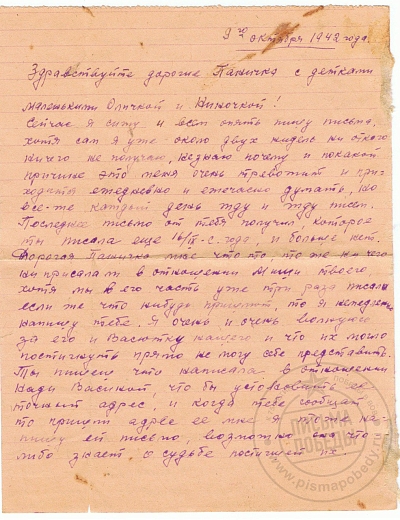 9го октября 1942 года.
Здравствуйте дорогие Паничка с детками
маленькими Оличкой и Ниночкой!
Сейчас я сижу и всем опять пишу письма,
хотя сам я уже около двух нидель ни откого
ничего не получаю, незнаю почему и покакой
причине это меня очень тревожит и при-
ходится ежедневно и ежечасно думать, но
все-же каждый день жду и жду писем.
Последнее письмо от тебя получил, которое
ты писала еще 16/IX-с. года, и больше нет.
Дорогая Паничка мне что-то то же ни чего
ни присалали в отношении Миши твоего,
хотя мы в его часть уже три раза писали
если же что нибудь пришлют, то я немедлен
напишу тебе. Я очень и очень волнуюс
за его и Васютку нашего и что их могло
постигнуть прямо не могу себе представить.
Ты пишеш что написала в отношении
Нади Васиной, что бы установить ее
точный адрес, и когда тебе сообщат
то пришли адрес ее мне я тоже на-
пишу ей письмо, возможно она что
либо знает о судьбе постигшей их.
ПИСЬМА ПОБЕДЫ
www.pismapobedy.ru